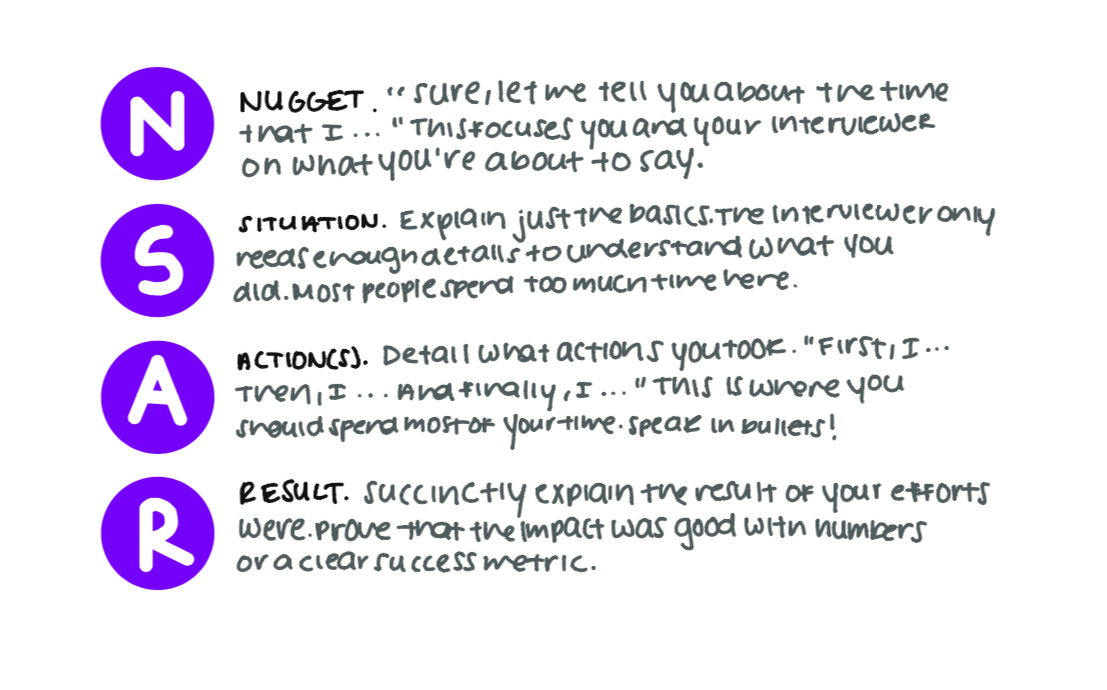 N
NUGGET. "Sure, let me tell you about the time
that I ... " This focuses you and your interviewer
on what you're about to say.
S
SITUATION. Explain just the basics. The interviewer only
needs enough details to understand what you
did. Most people spend too much time here.
A
ACTION(S). Detail what actions you took. "First, I ...
Then, I ... And finally, I ... " This is where you
should spend most of your time. Speak in bullets!
R
RESULT. Succinctly explain the result of your efforts
were. Prove that the impact was good with numbers
or a clear success metric.